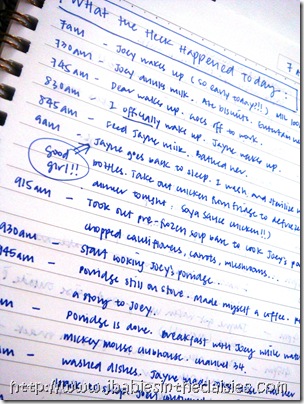 What the Heck Happened Today:
7am - Joey wake up (so early today?!!)
730am - Joey drinks milk. Ate biscuits.
745am - Dear wake up. Goes off to work.
830am - I officially wake up. Jayne wake up.
845am - Feed Jayne milk. Bathed her.
9am - Jayne goes back to sleep. I wash and
good girl!!!
bottles. Take out chicken from fridge to
dinner tonight: soya sauce chicken!!)
915am - Took out pre-frozen soup base to cook Joey's
chopped cauliflowers, carrots, mushrooms...
930am - Start cooking Joey's porridge.
945am - porridge still on stove. Made myself a coffee.
a story to Joey.
am - Porridge is done. Breakfast with Joey while
mickey mouse clubhouse - channel 34.
am - washed dishes. Jayne
http://www.babiesinthedaisies.com